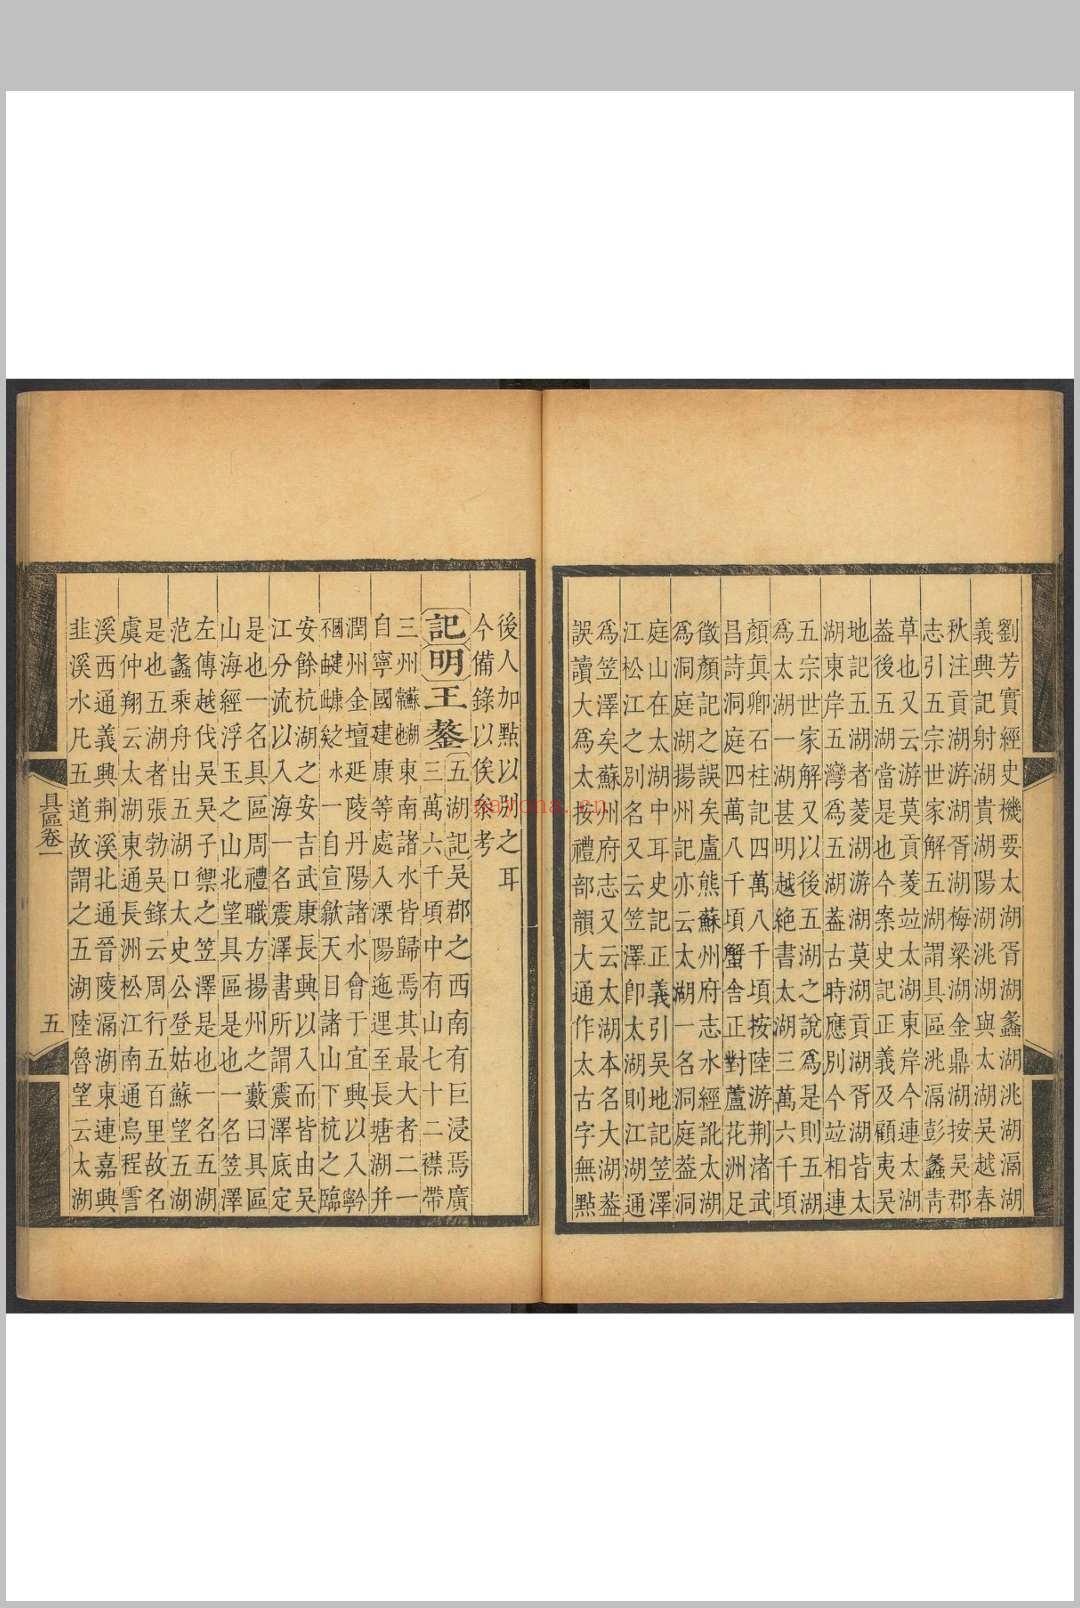 劉芳實經史機要太湖胥湖蠡湖洮湖滆湖
義興記射湖貴湖陽湖洮湖與太湖吳越春
秋注貢湖游湖胥湖梅梁湖金鼎湖按吳郡
志引五宗世家解五湖謂具區洮滆彭蠡靑
草也又云游莫貢菱竝太湖東岸今連太湖
葢後五湖當是也今案史記正義及顧夷吳
地記五湖者菱湖游湖莫湖貢湖胥湖皆太
湖東岸五灣爲五湖葢古時應別今竝相連
五宗世家解又以後五湖之說爲是則五湖
爲太湖一湖甚明越絶書太湖三萬六千頃
顏眞卿石柱記四萬八千頃按陸游荆渚武
昌詩洞庭四萬八千頃蟹舍正對蘆花洲足
徵顏記之誤矣盧熊蘇州府志水經訛太湖
爲洞庭湖揚州記亦云太湖一名洞庭葢洞
庭山在太湖中耳史記正義引吳地記笠澤
江松江之別名又云笠澤卽太湖則江湖通
爲笠澤矣蘇州府志又云太湖本名大湖葢
誤讀大爲太按禮部韻大通作太古字無點
後人加點以別之耳
今備錄以俟叅考
記明王鏊五湖記吳郡之西南有巨浸焉廣
三萬六千頃中有山七十二襟帶
三州東南諸水皆歸焉其最大者二一
自寧國建康等處入溧陽迤逦至長塘湖幷
潤州金壇延陵丹陽諸水會于宜興以入
一自宣歙天目諸山下杭之臨
安餘杭湖之安吉武康長興以入而皆由吳
江分流以入海一名震澤書所謂震澤底定
是也一名具區周禮職方揚州之藪曰具區
山海經浮玉之山北望具區是也一名笠澤
左傳越伐吳吳子禦之笠澤是也一名五湖
范蠡乘舟出五湖口太史公登姑蘇望五湖
是也五湖者張勃吳錄云周行五百里故名
虞仲翔云太湖東通長洲松江南通烏程霅
溪西通義興荆溪北通晉陵滆湖東連嘉興
韭溪水凡五道故謂之五湖陸魯望云太湖
具區卷一
五